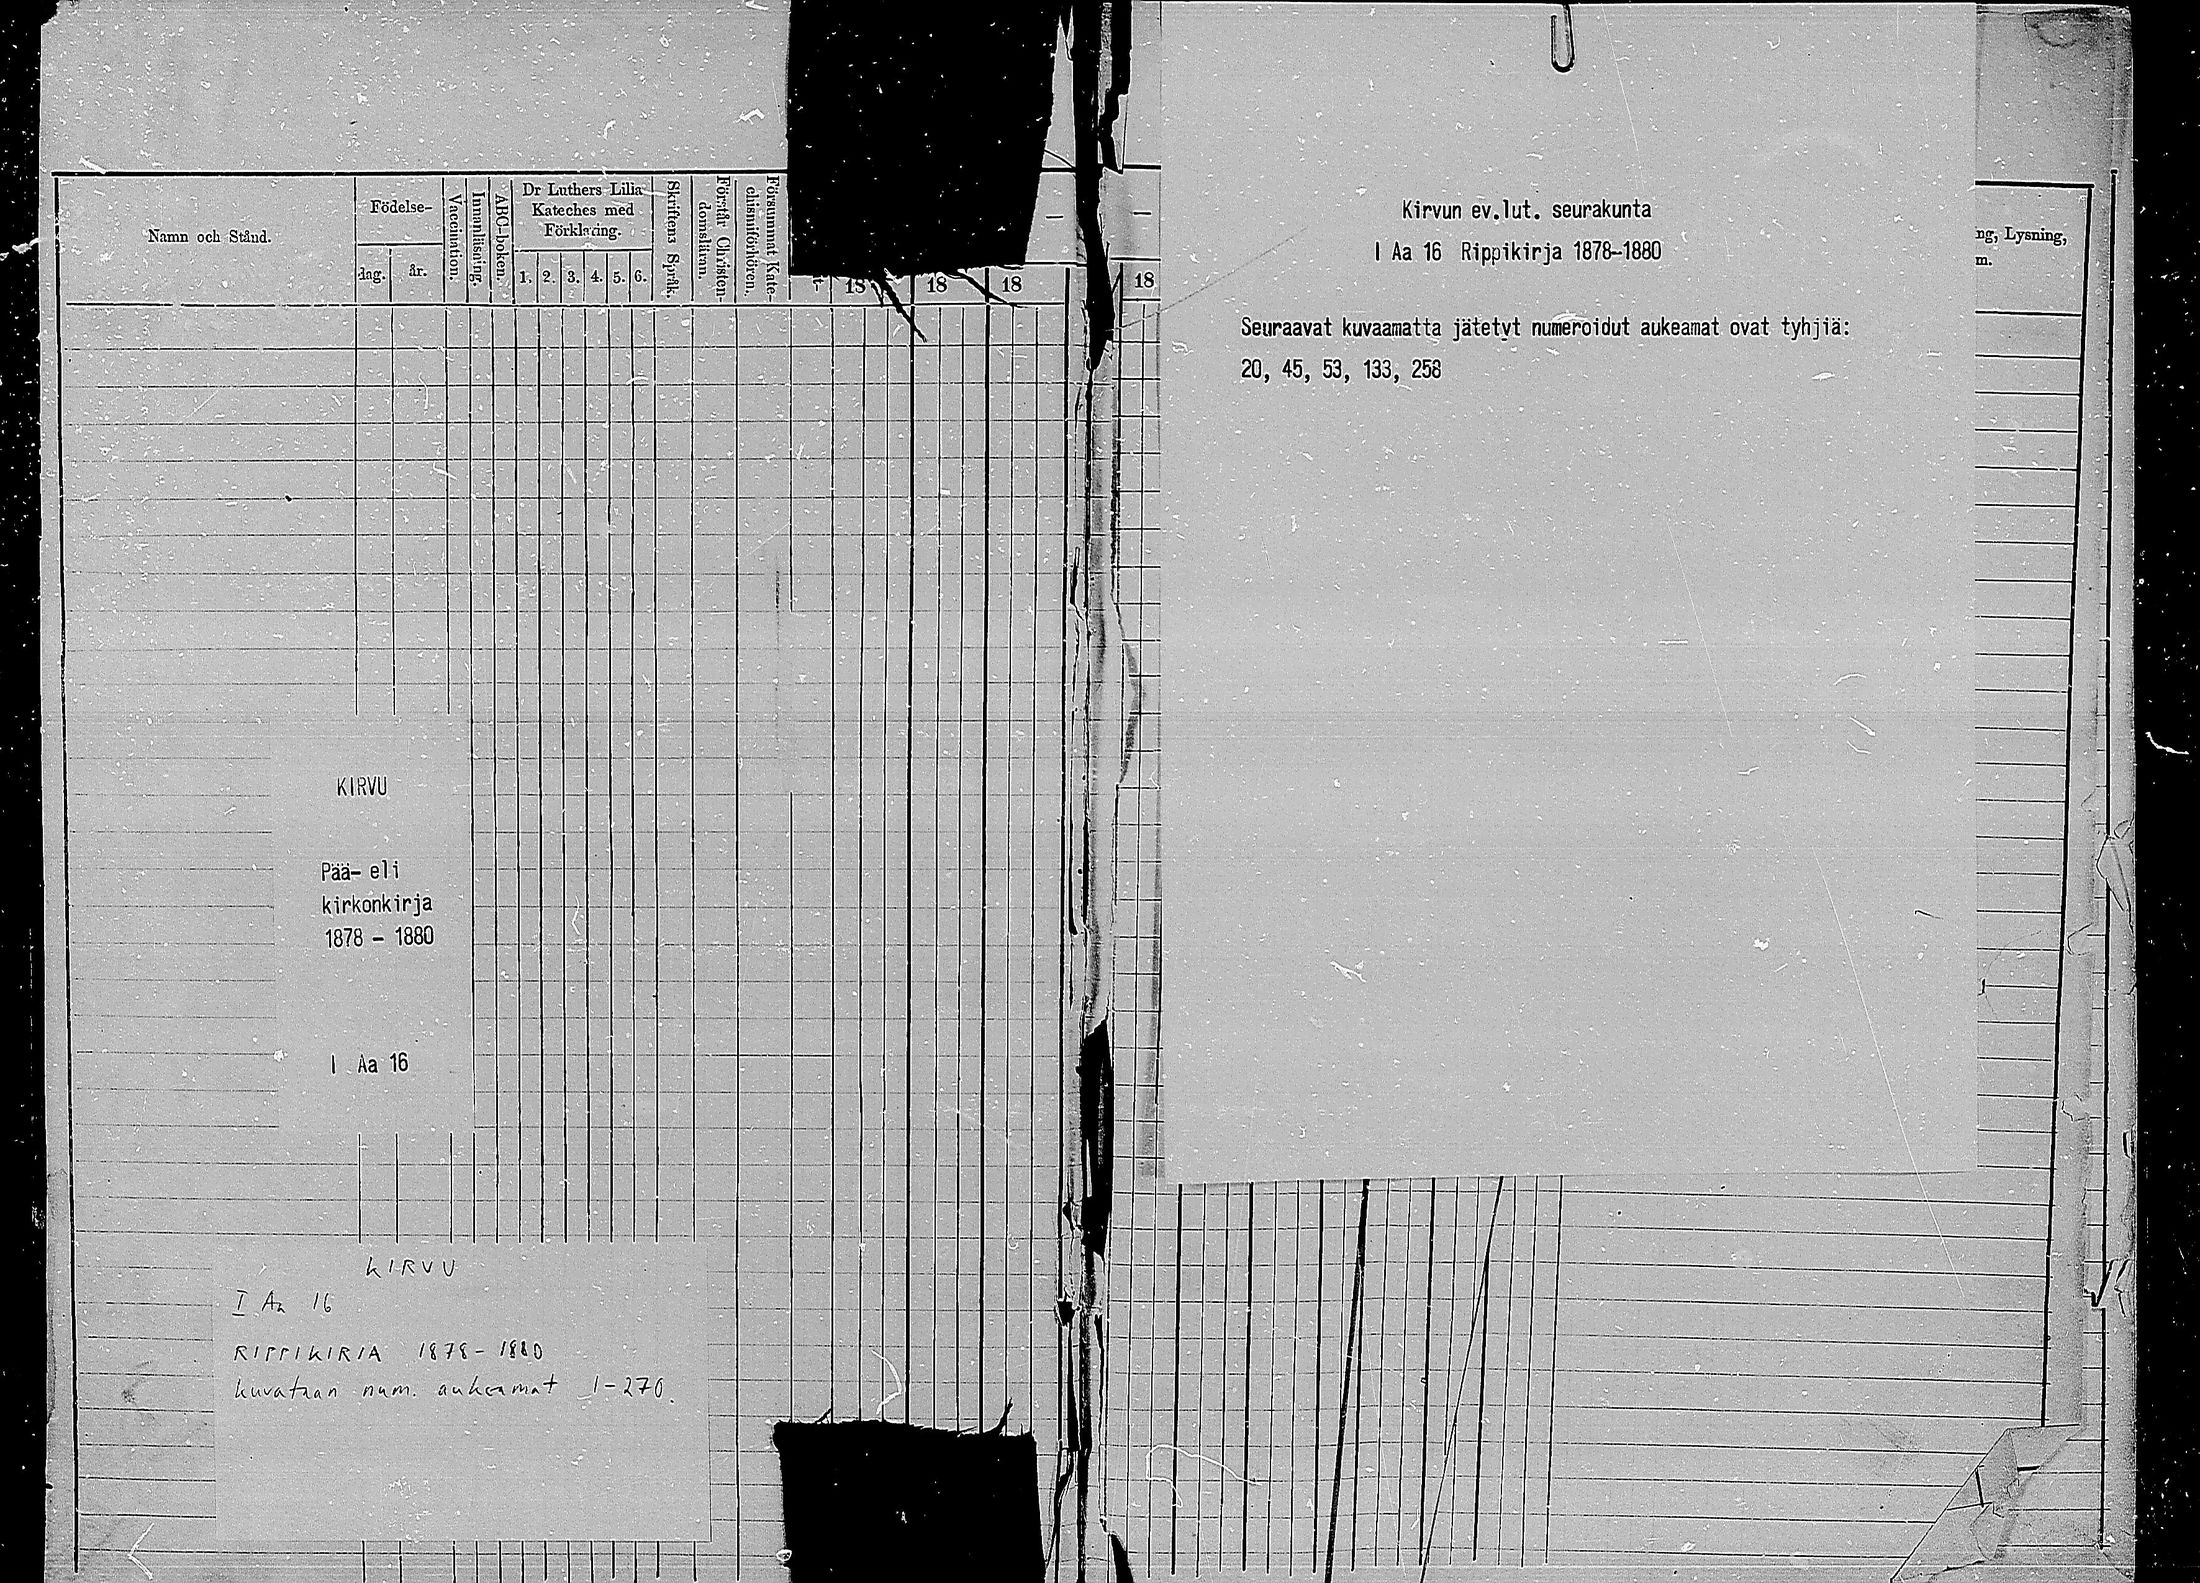 Namn och Stånd.
Födelse-
dag.
år.
Vaccination.
Innanläsning.
ABC-boken.
Dr Luthers Lilla
Kateches med
Förklaring.
1. 2. 3. 4. 5. 6.
Skriftens Språk.
Förstår Christen-
domsläran.
Försummat Kate-
chismiförhören.
18
18
18
KIRVU
Pää- eli
kirkonkirja
1878 - 1880
I Aa 16
KIRVU
I Aa 16
RIPPIKIRJA 1878-1880
kuvataan num. aukeamat 1-270.
18
ng, Lysning,
m.
Kirvun ev.lut. seurakunta
I Aa 16 Rippikirja 1878-1880
Seuraavat kuvaamatta jätetyt numeroidut aukeamat ovat tyhjiä:
20, 45, 53, 133, 258